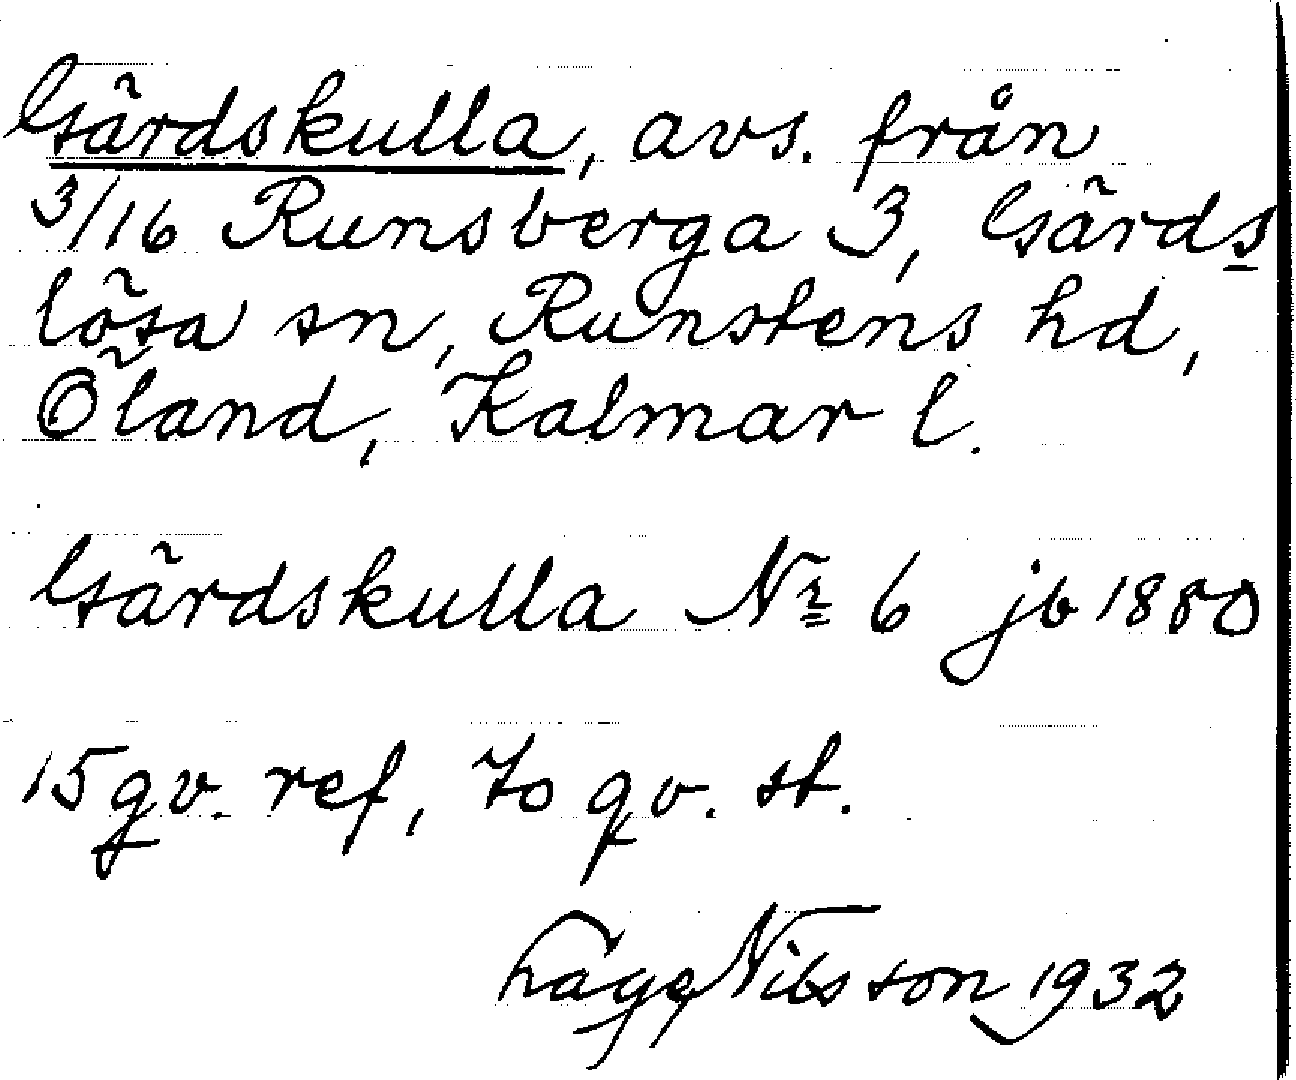 Gärdskulla, avs. från
3/16 Runsberga 3, Gärds
lösa sn, Runstens hd,
Öland, Kalmar l.
Gärdskulla Nr 6 jb 1880
15 qv. ref, 70 qv. st.
Tage Nilsson 1932